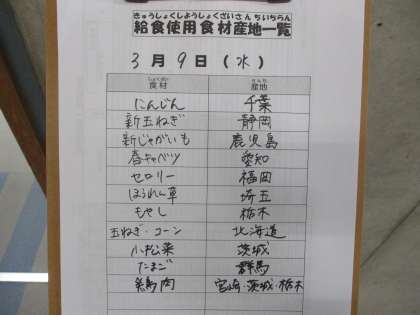 きゅうしょくしようしょくざいさんちいちらん
給食使用食材産地一覧
3月9日(水)
しょくざい さんち
食材 産地
にんじん 千葉
新玉ねぎ 静岡
新じゃがいも 鹿児島
春キャベツ 愛知
セロリー 福岡
ほうれん草 埼玉
もやし 栃木
玉ねぎ・コーン 北海道
小松菜 茨城
たまご 群馬
鶏肉 宮崎・茨城・栃木